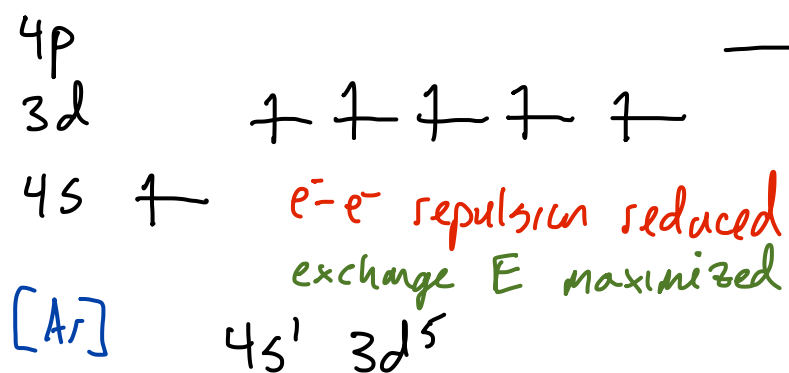 4p
3d
4s e⁻-e⁻ repulsion reduced
exchange E maximized
[Ar] 4s¹ 3d⁵